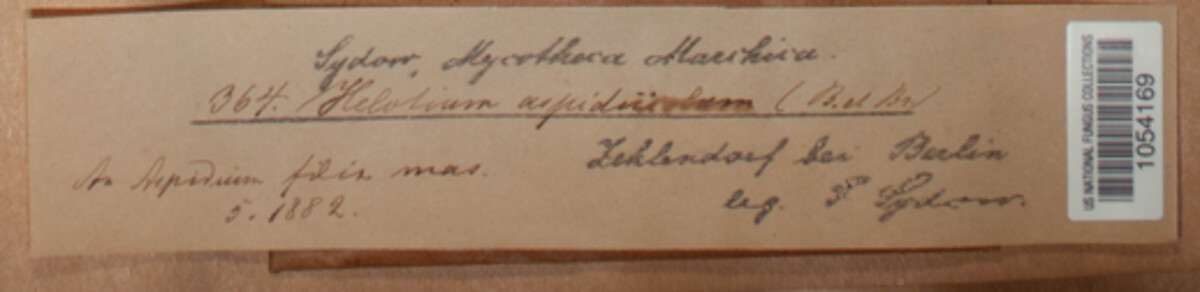 Sydow, Mycotheca Marchica.
364. Helotium aspidiicolum (B. et Br)
An Aspidium filix mas.
5. 1882.
Zehlendorf bei Berlin
leg. P Sydow.
US NATIONAL FUNGUS COLLECTIONS
1054169